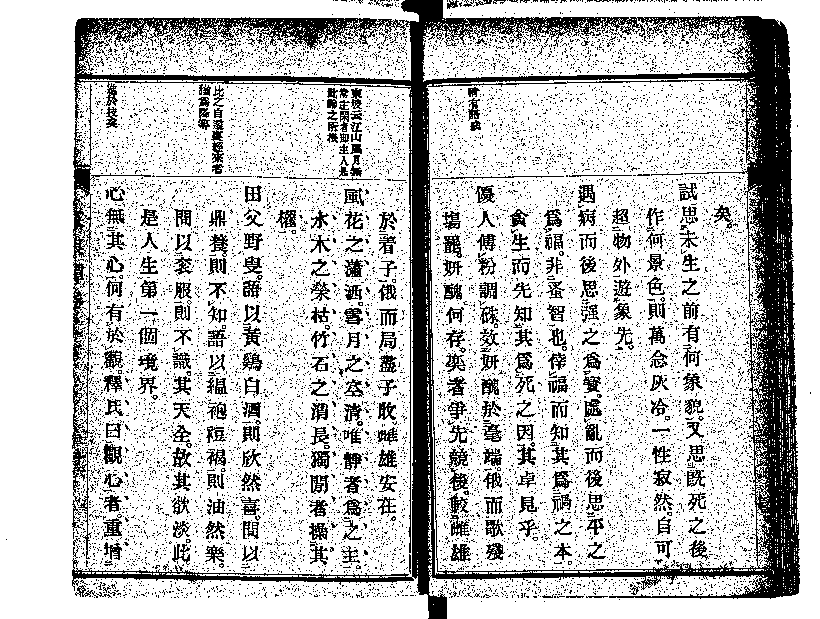 矣。
試思未生之前有何象貌。又思既死之後
作何景色。則萬念灰冷。一性寂然。自可
超物外遊象先。
遇病而後思强之爲寶。處亂而後思平之
爲福。非蚤智也。倖福而知其爲禍之本。
貪生而先知其爲死之因。其卓見乎。
優人傅粉調硃。效姸醜於毫端。俄而歌殘
場罷。姸醜何存。奕者爭先競後。較雌雄
東坡云江山風月無
常主閑者即主人是
此節之所根
於着子。俄而局盡子收。雌雄安在。
風花之瀟洒。雪月之空清。唯靜者爲之主。
水木之榮枯。竹石之消長。獨閒者操其
權。
田父野叟。語以黃鷄白酒。則欣然喜。問以
鼎養。則不知。語以縕袍裋褐。則油然樂。
問以袞服。則不識。其天全。故其欲淡。此
是人生第一個境界。
心無其心。何有於觀。釋氏曰觀心者。重增